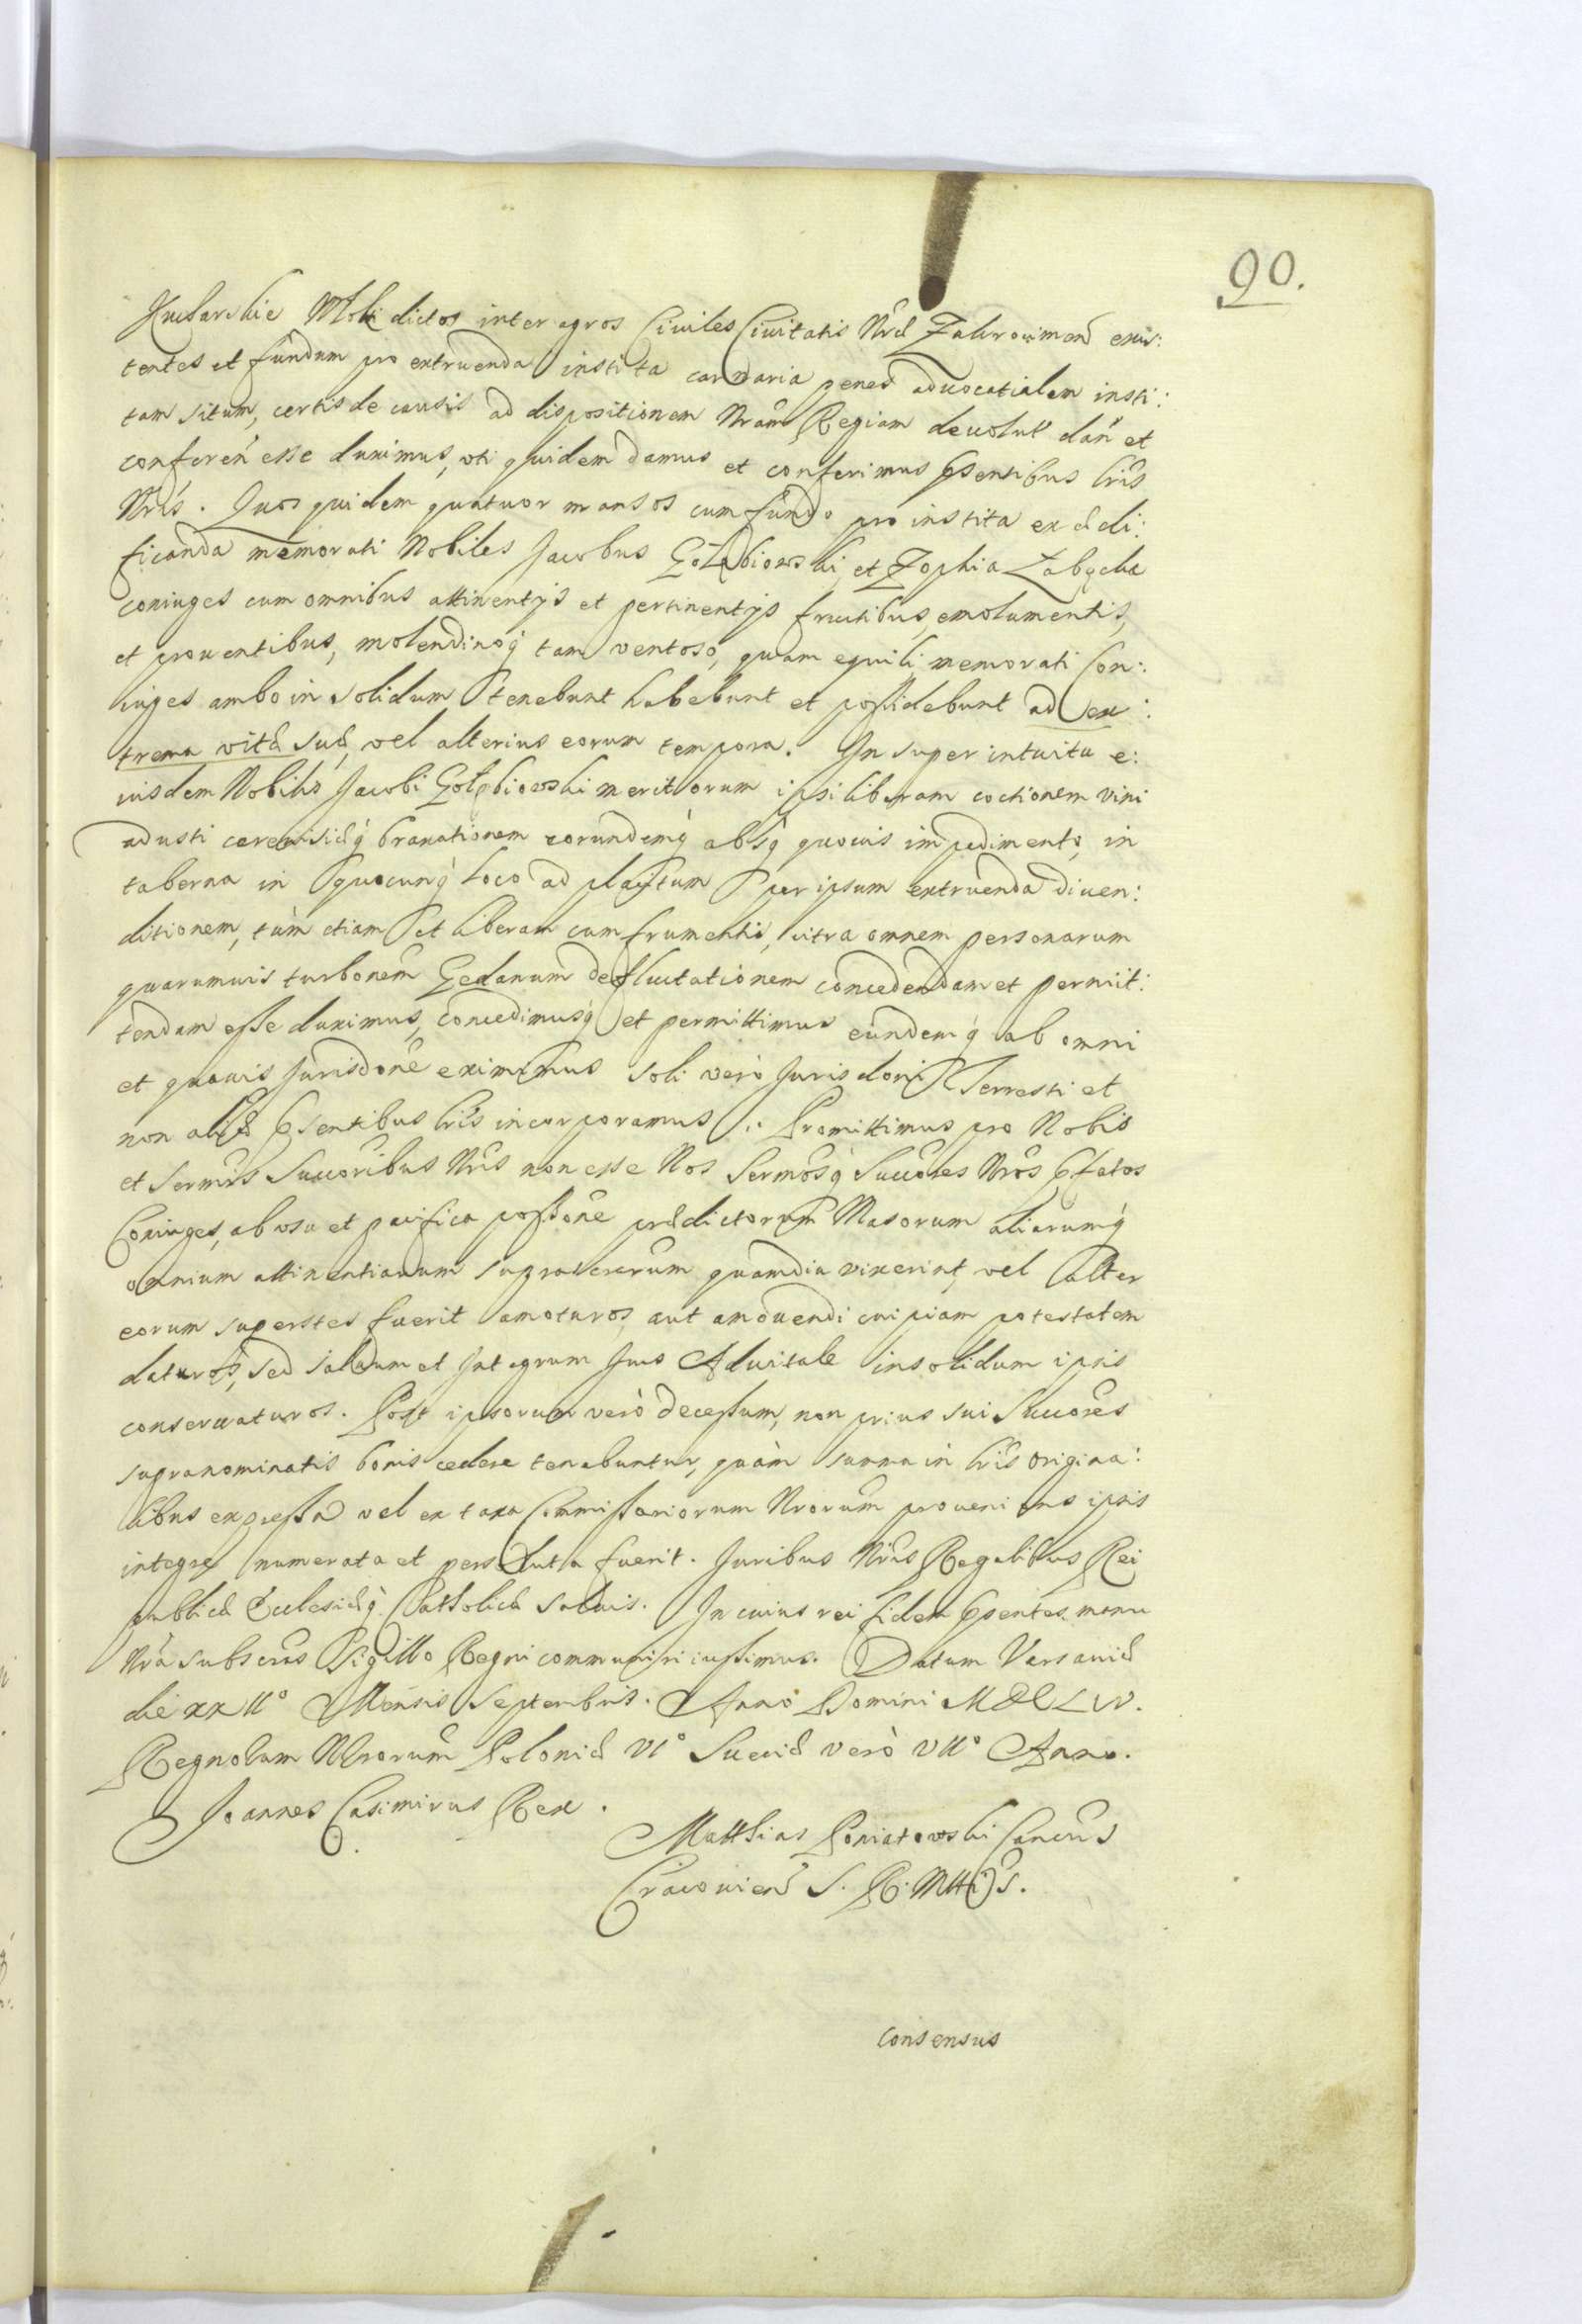 90.
dictos inter agros Ciuiles Ciuitatis Nræ Zakrocimen exis:
tentes et fundum pro extruenda instita carnaria penes aduocatialem insti:
tam situm, certis de causis ad dispositionem Nram Regiam deuolut dan et
conferen esse duximus, vti quidem damus et conferimus pñsentibus lris
Nris. Quos quidem quatuor mansos cum fundo pro instita exædi:
ficanda memorati Nobiles Jacobus Gołąbiowski et Zophia
coniuges cum omnibus attinentijs et pertinentijs fructibus, emolumentis,
et prouentibus, molendinoq tam ventoso, quam equili memorati Con:
iuges ambo in solidum tenebunt habebunt et possidebunt ad ex:
trema vitæ suæ, vel alterius eorum tempora. In super intuitu e:
iusdem Nobilis Jacobi Gołębiowski meritorum ipsi liberam coctionem vini
adusti cereuisiæq braxationem eorundemq absq quouis impedimento, in
taberna in quocunq loco ad placitum per ipsum extruenda diuen:
ditionem, tùm etiam et liberam cum frumentis, citra omnem personarum
quarumuis turbonem Gedanum defluitationem concedendam et permit:
tendam esse duximus, concedimusq et permittimus eundemq ab omni
et quauis Jurisdone eximimus soli verò Jurisdoni Terresti et
non aliæ pñsentibus lris incorporamus. Promittimus pro Nobis
et Sermis Succoribus Nris non esse Nos Sermosq Succores Nros pfatos
Coniuges, ab vsu et pacifica possone prædictorum Masorum aliarumq
omnium attinentiarum suprascrarum quamdiu vixerint, vel alter
eorum superstes fuerit amoturos, aut amouendi cuipiam potestatem
daturos, sed saluum et Integrum Jus Aduitale insolidum ipsis
conseruaturos. Post ipsorum verò decessum, non prius sui Succores
supranominatis bonis cedere tenebuntur, quàm summa in lris origina:
libus expressa vel ex taxa Commissariorum Nrorum proueniens ipsis
integre numerata et persoluta fuerit. Juribus Nris Regalibus Rei
publicæ Ecclesiæq Catholicæ saluis. In cuius rei fidem pñsentes manu
Nra subscras Sigillo Regni communiri iussimus. Datum Varsauiæ
die XXII° Mensis Septembris. Anno Domini MDCLIV.
Regnorum Nrorum Poloniæ VI° Sueciæ verò VII° Anno.
Joannes Casimirus Rex.
Matthias Poniatowski Cancus
Cracouien S. R. Mttis S.
Consensus